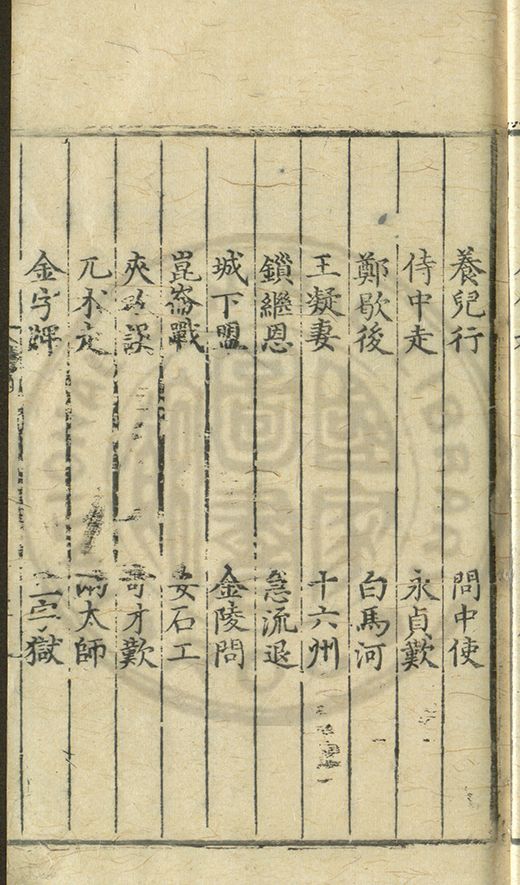 養兒行 問中使
侍中走 永貞歎
鄭歇後 白馬河
王凝妻 十六州
鎖繼恩 急流退
城下盟 金陵問
崑崙戰 安石工
夾攻誤 奇才歎
兀朮走 兩太師
金字牌 三字獄